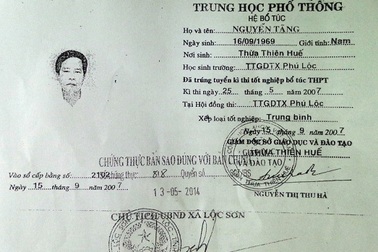 TRUNG HỌC PHỔ THÔNG
HỆ BỔ TÚC
Họ và tên: NGUYỄN TĂNG
Ngày sinh: 16/09/1969 Giới tính: Nam
Nơi sinh: Thừa Thiên Huế
Học sinh trường: TTGDTX Phú Lộc
Đã trúng tuyển kì thi tốt nghiệp bổ túc THPT
Kì thi ngày 25 tháng 5 năm 2007
Tại Hội đồng thi: TTGDTX Phú Lộc
Xếp loại tốt nghiệp: Trung bình
Ngày 15 tháng 9 năm 2007
GIÁM ĐỐC SỞ GIÁO DỤC VÀ ĐÀO TẠO
THỪA THIÊN HUẾ
CHỨNG THỰC BẢN SAO ĐÚNG VỚI BẢN CHÍNH
Vào sổ cấp bằng số: Chứng thực: Quyển số
Ngày 15 tháng 9 năm 2007
13-05-2014
NGUYỄN THỊ THU HÀ
CHỦ TỊCH UBND XÃ LỘC SƠN